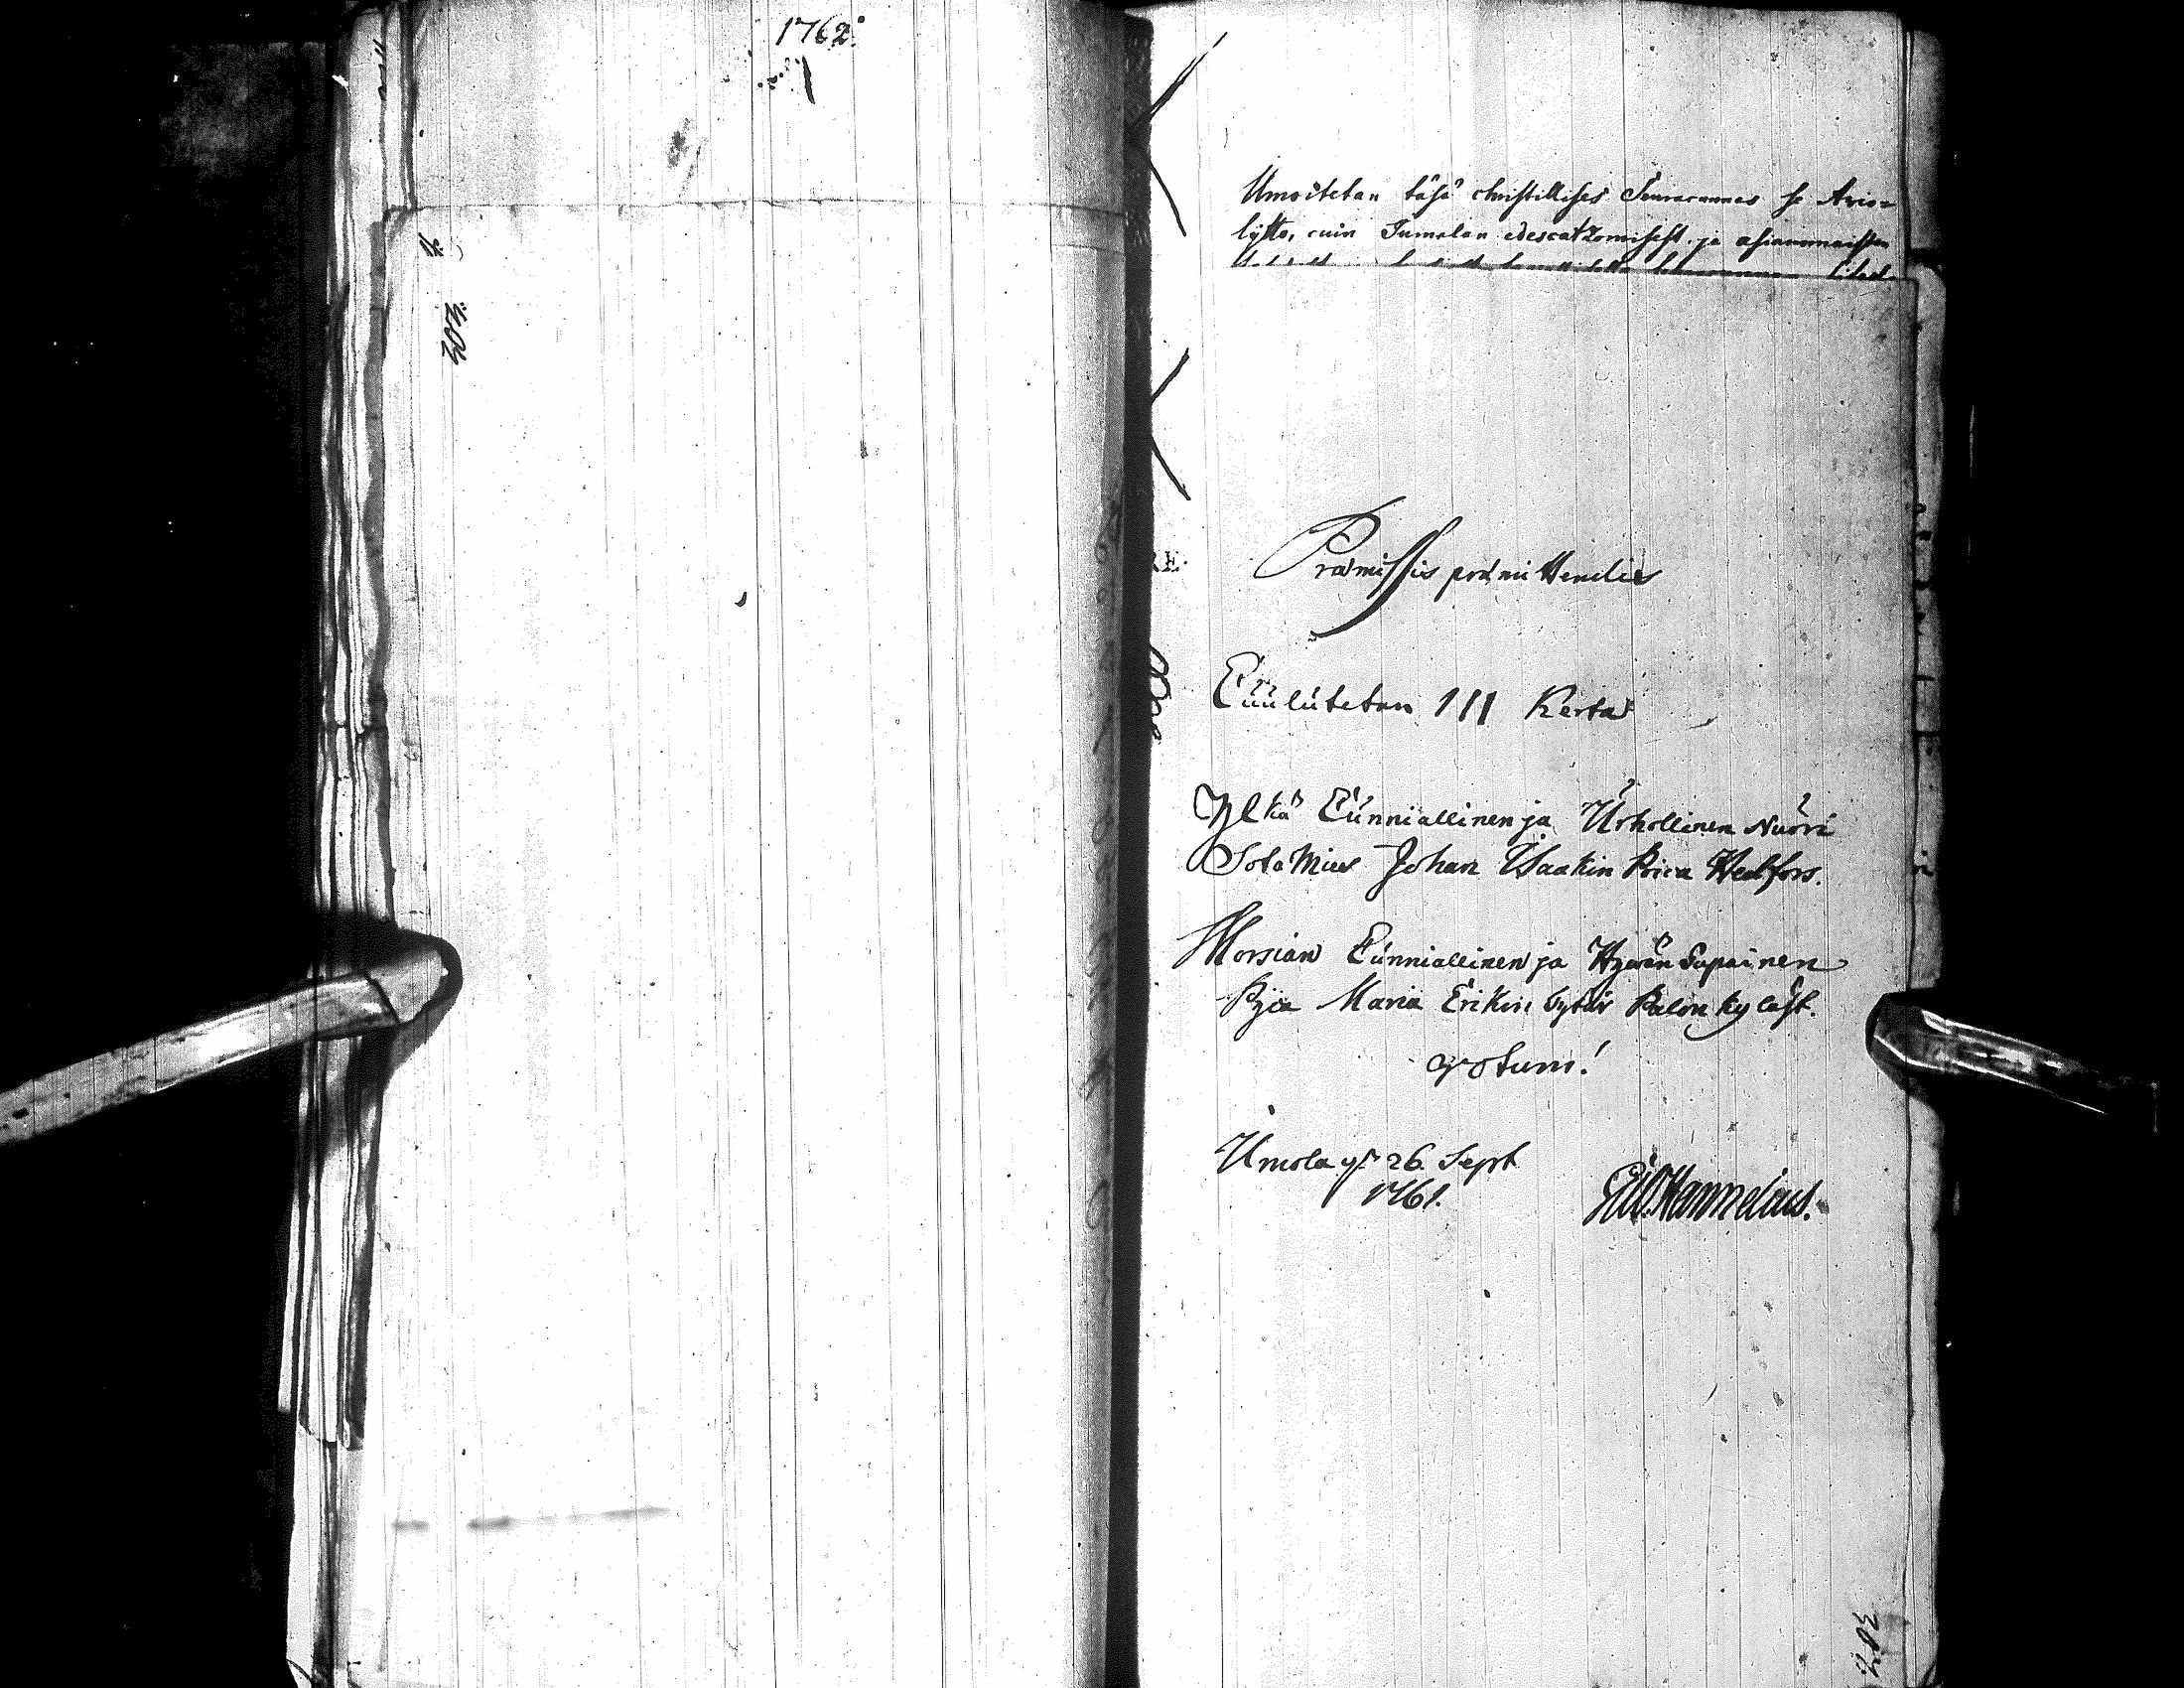 1762
Ilmoitetan täsä christillises Seuracunnas se Avio-
lijtto, cuin Jumalan edescatzomisest ja asianomaisten
Præmissis præmittendis
Cuulutetan III Kerta
Ylkä Cunniallinen ja Urhollinen Nuori
SotaMies Johan Isaakin Poica Hedfors.
Morsian Cunniallinen ja Hywän Sapainen
Pyia Maria Erikin tytär Palon kyläst.
votum!
Umola ȳ 26. Sept
1761.
Hannelius.
302